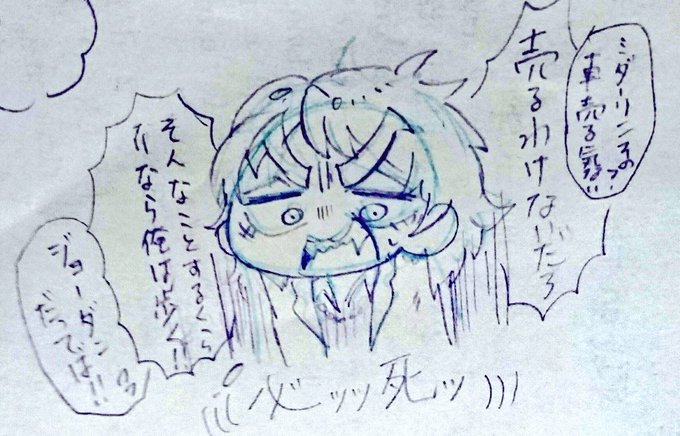 ミダーリンその
車売る気ない!!
売るわけないだろ
そんなことするくら
いなら俺は歩く!!
ジョーダン
だってば!!
必ッッ死ッ